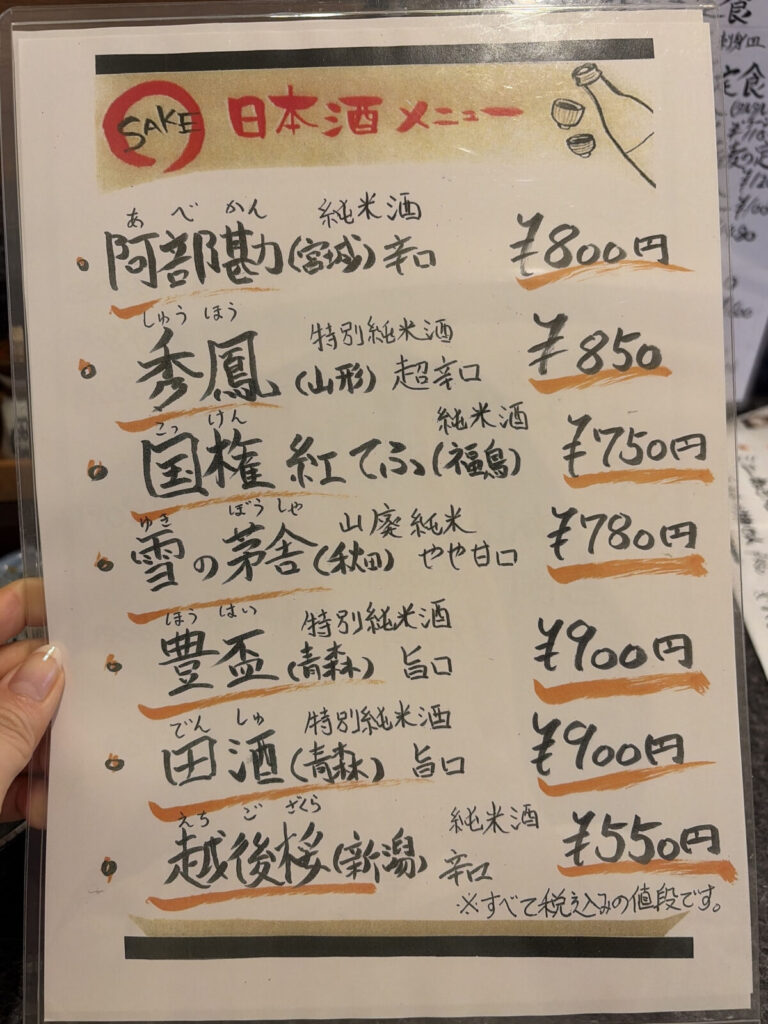 SAKE 日本酒メニュー
あべかん 純米酒
・阿部勘(宮城)辛口 ¥800円
しゅうほう 特別純米酒
・秀鳳(山形)超辛口 ¥850
こっけん 純米酒
・国権 紅てふ(福島) ¥750円
ゆき ぼうしゃ 山廃純米
・雪の茅舎(秋田)やや甘口 ¥780円
ほうはい 特別純米酒
・豊盃(青森)旨口 ¥900円
でんしゅ 特別純米酒
・田酒(青森)旨口 ¥900円
えちござくら 純米酒
・越後桜(新潟)辛口 ¥550円
※すべて税込みの値段です。
食
定食